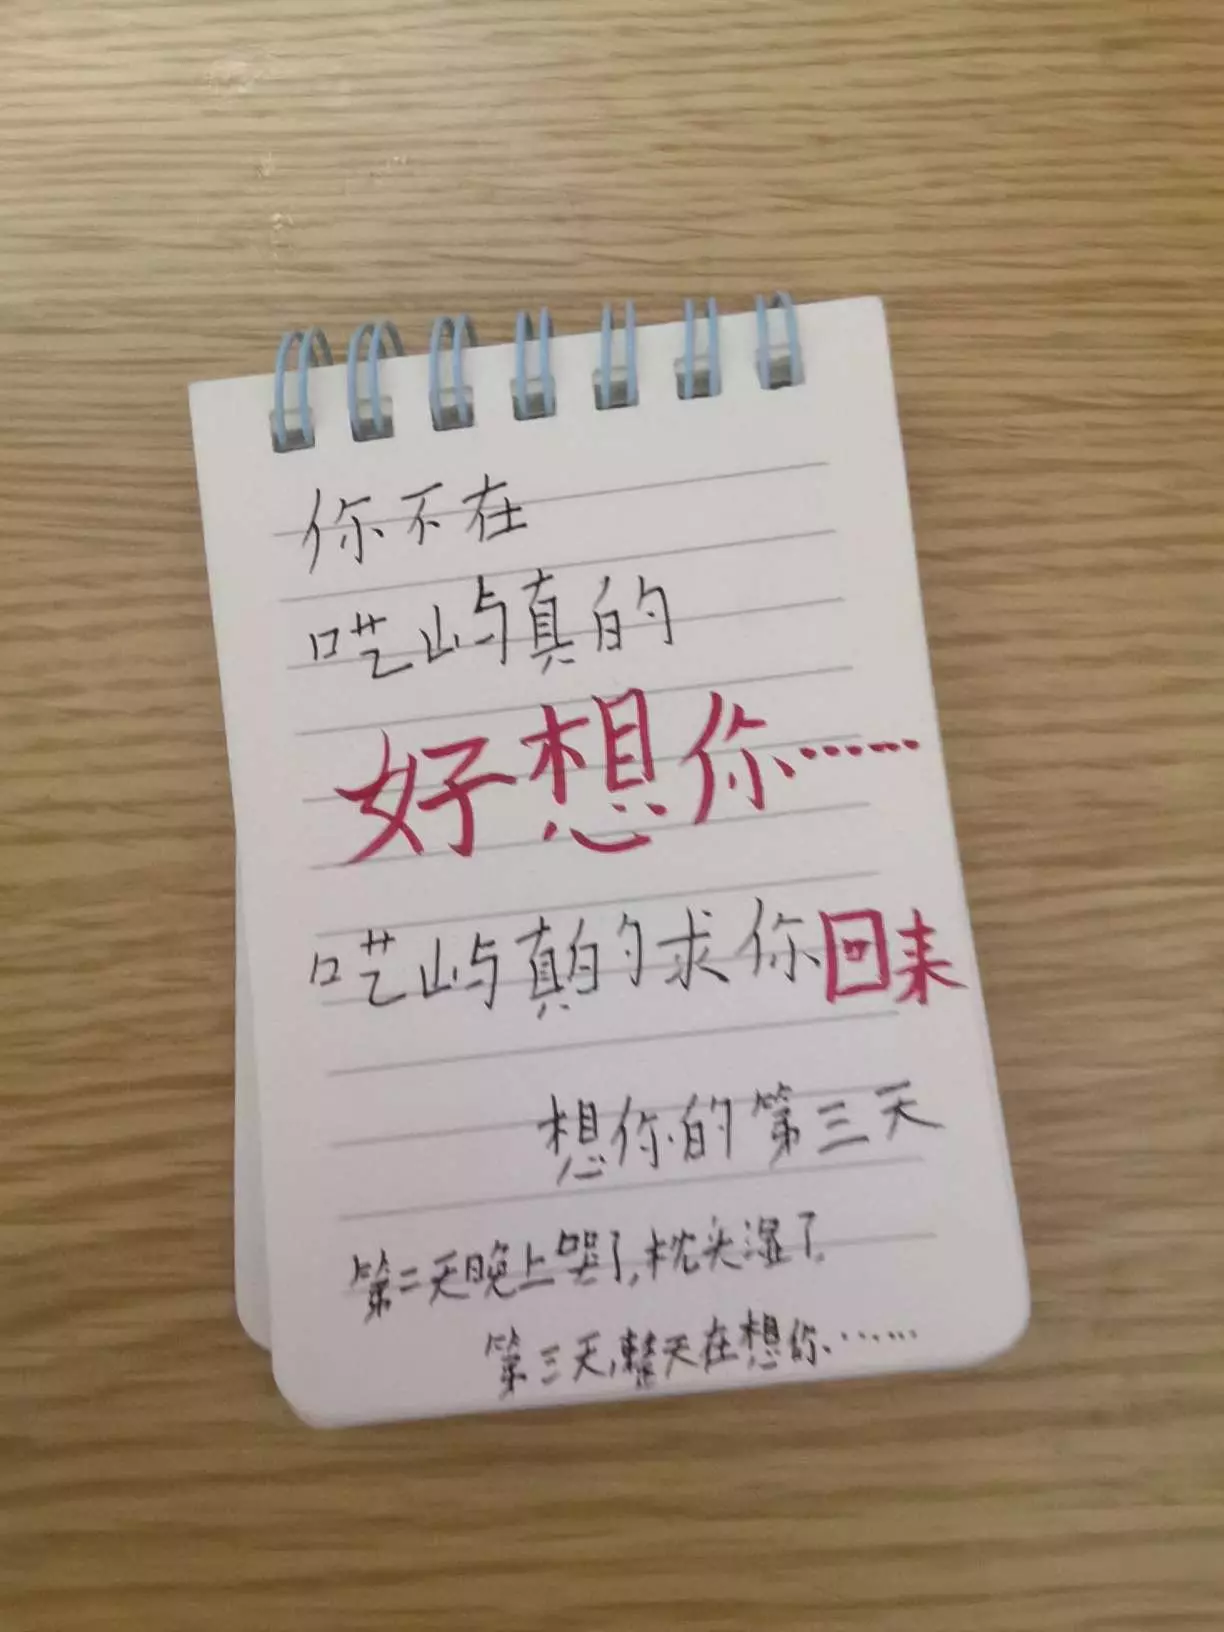 你不在
呓屿真的
好想你……
呓屿真的求你回来
想你的第三天
第二天晚上哭了,枕头湿了.
第三天,整天在想你.……